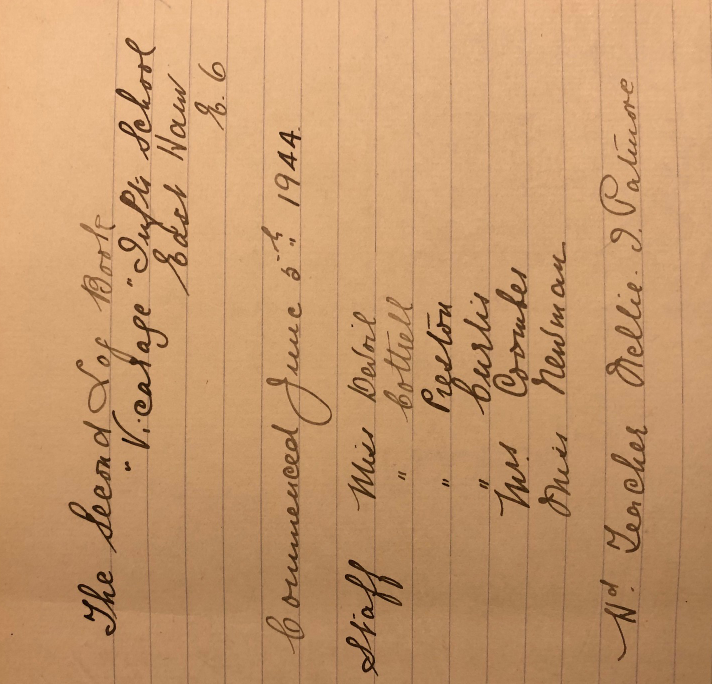 The Second Log Book
"Vicarage" Infts School
East Ham
E. 6
Commenced June 5th 1944.
Staff Miss Devoil
" Cottrell
" Preston
" Curtis
Mrs Coombes
Miss Newman
Hd. Teacher Nellie. I. Patmore